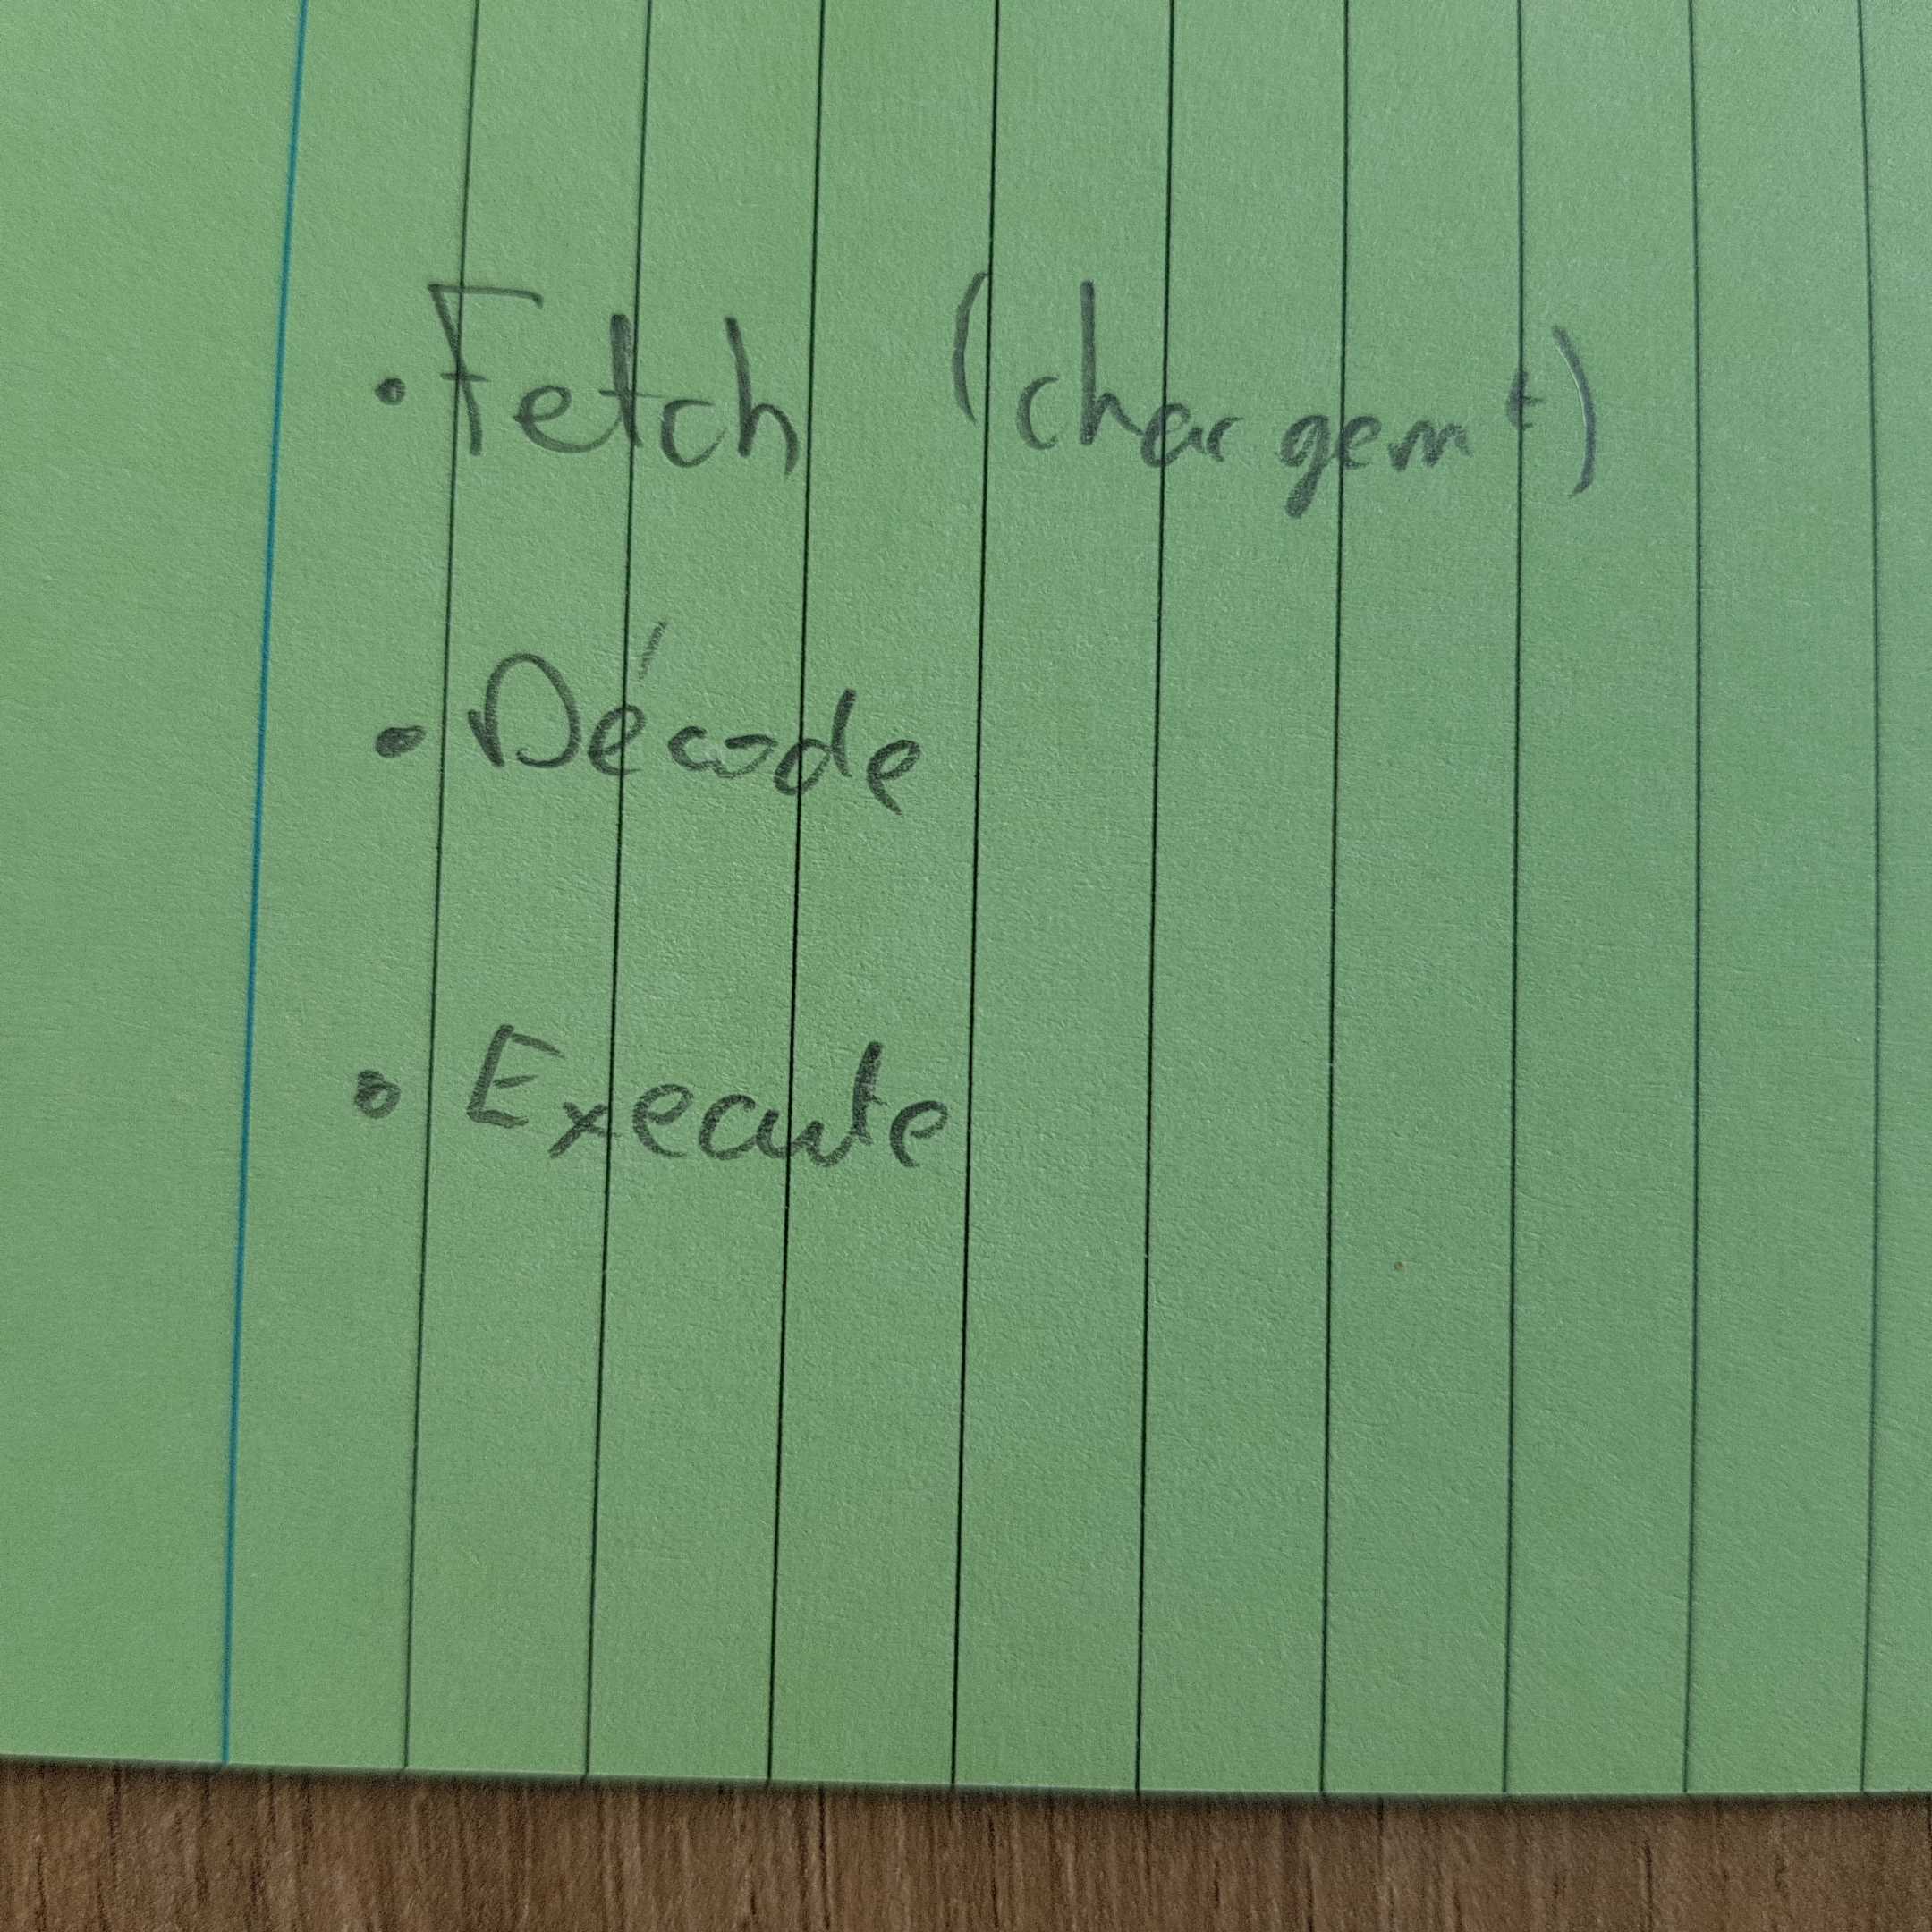 • Fetch (chargemt)
• Décode
• Execute